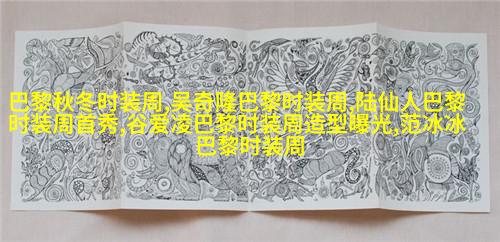 巴黎秋冬时装周,吴奇隆巴黎时装周,陆仙人巴黎
时装周首秀,谷爱凌巴黎时装周造型曝光,范冰冰
巴黎时装周